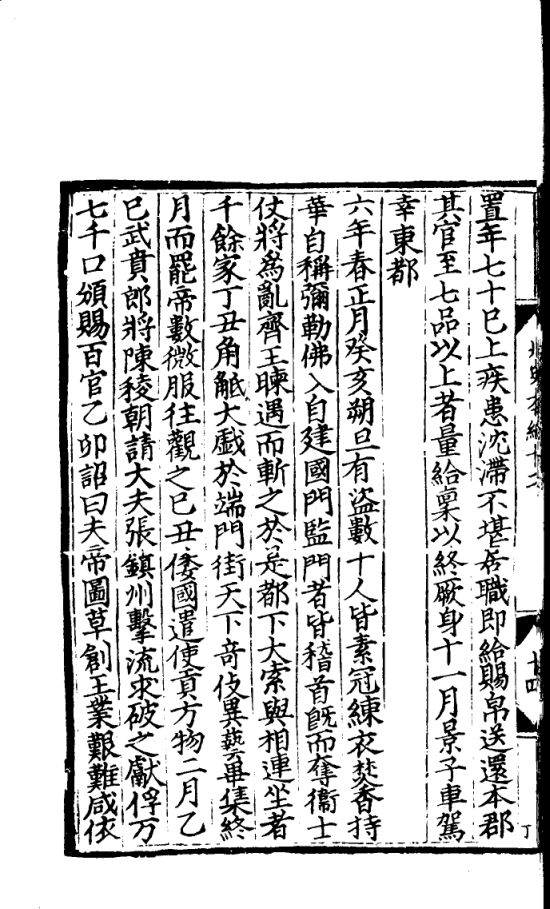 置年七十巳上疾患沈滯不堪居職即給賜帛送還本郡
其官至七品以上者量給稟以終厥身十一月景子車駕
幸東都
六年春正月癸亥朔旦有盜數十人皆素冠練衣焚香持
華自稱彌勒佛入自建國門監門者皆稽首旣而奪衞士
仗將爲亂齊王暕遇而斬之於是都下大索與相連坐者
千餘家丁丑角觝大戲於端門街天下竒伎異藝畢集終
月而罷帝數微服往觀之巳丑倭國遣使貢方物二月乙
巳武賁郎將陳稜朝請大夫張鎮州擊流求破之獻俘万
七千口頒賜百官乙卯詔曰夫帝圖草創王業艱難咸依
十四
丁